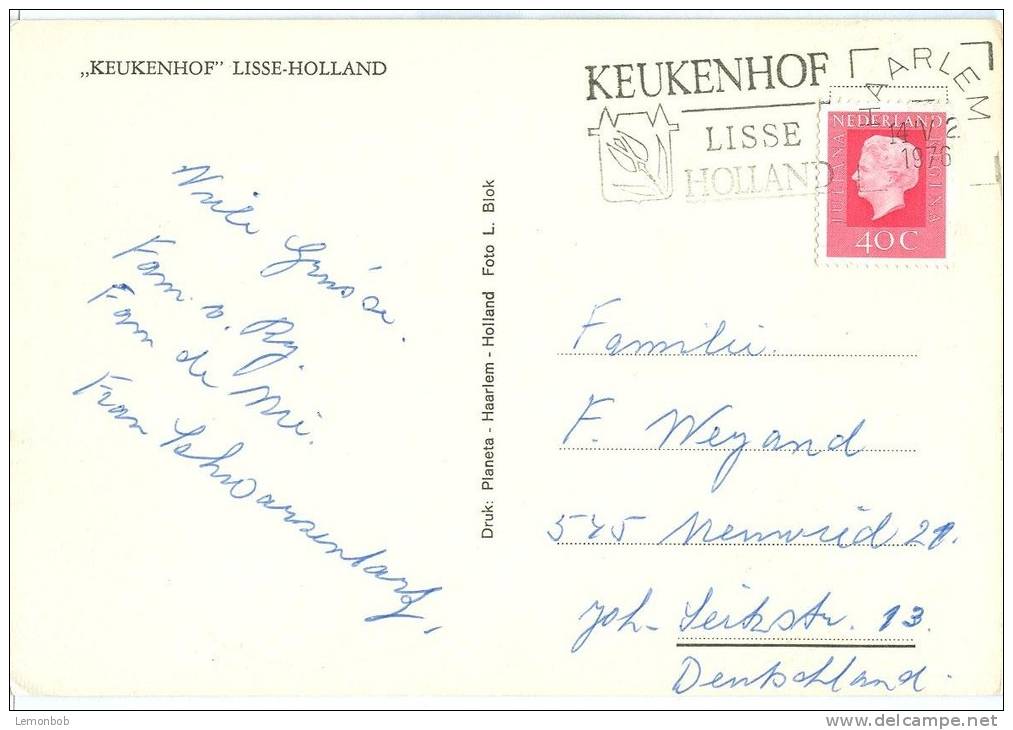 „KEUKENHOF” LISSE-HOLLAND
KEUKENHOF
LISSE
HOLLAND
HAARLEM
14 V 2
1976
NEDERLAND
JULIANA REGINA
40 C
Viele Grüsse.
Fam. v. Ry.
Fam de
Frau
Druk: Planeta - Haarlem - Holland Foto L. Blok
Familie.
F. Weyand
545 Neuwied 21.
Joh- Seitzstr. 13.
Deutschland.
Lemonbob
www.delcampe.net